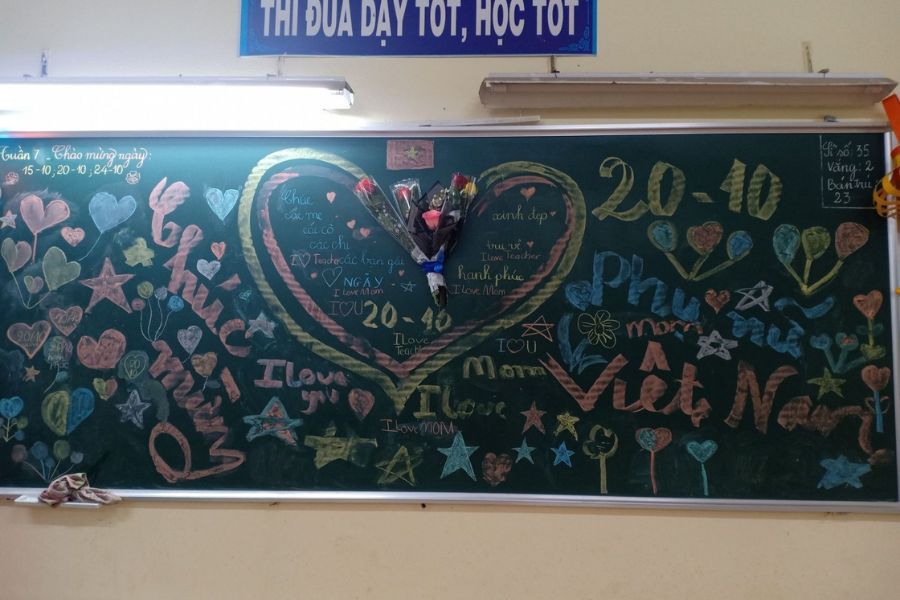 THI ĐUA DẠY TỐT, HỌC TỐT
Tuần 7 - Chào mừng ngày:
15-10; 20-10; 24-10
Sĩ số: 35
Vắng: 2
Bán trú
23
Chúc mừng
20-10
Phụ nữ
mom
Việt Nam
Chúc
các mẹ
cái cô
các chị
I ♡ Teacher
các bạn gái
NGÀY
I love Mom
I ♡ U
20-10
xinh đẹp
vui vẻ
I love Teacher
hạnh phúc
I love Mom
I Love
Teach
I ♡ U
Mom
I Love
you
I love
I love MOM